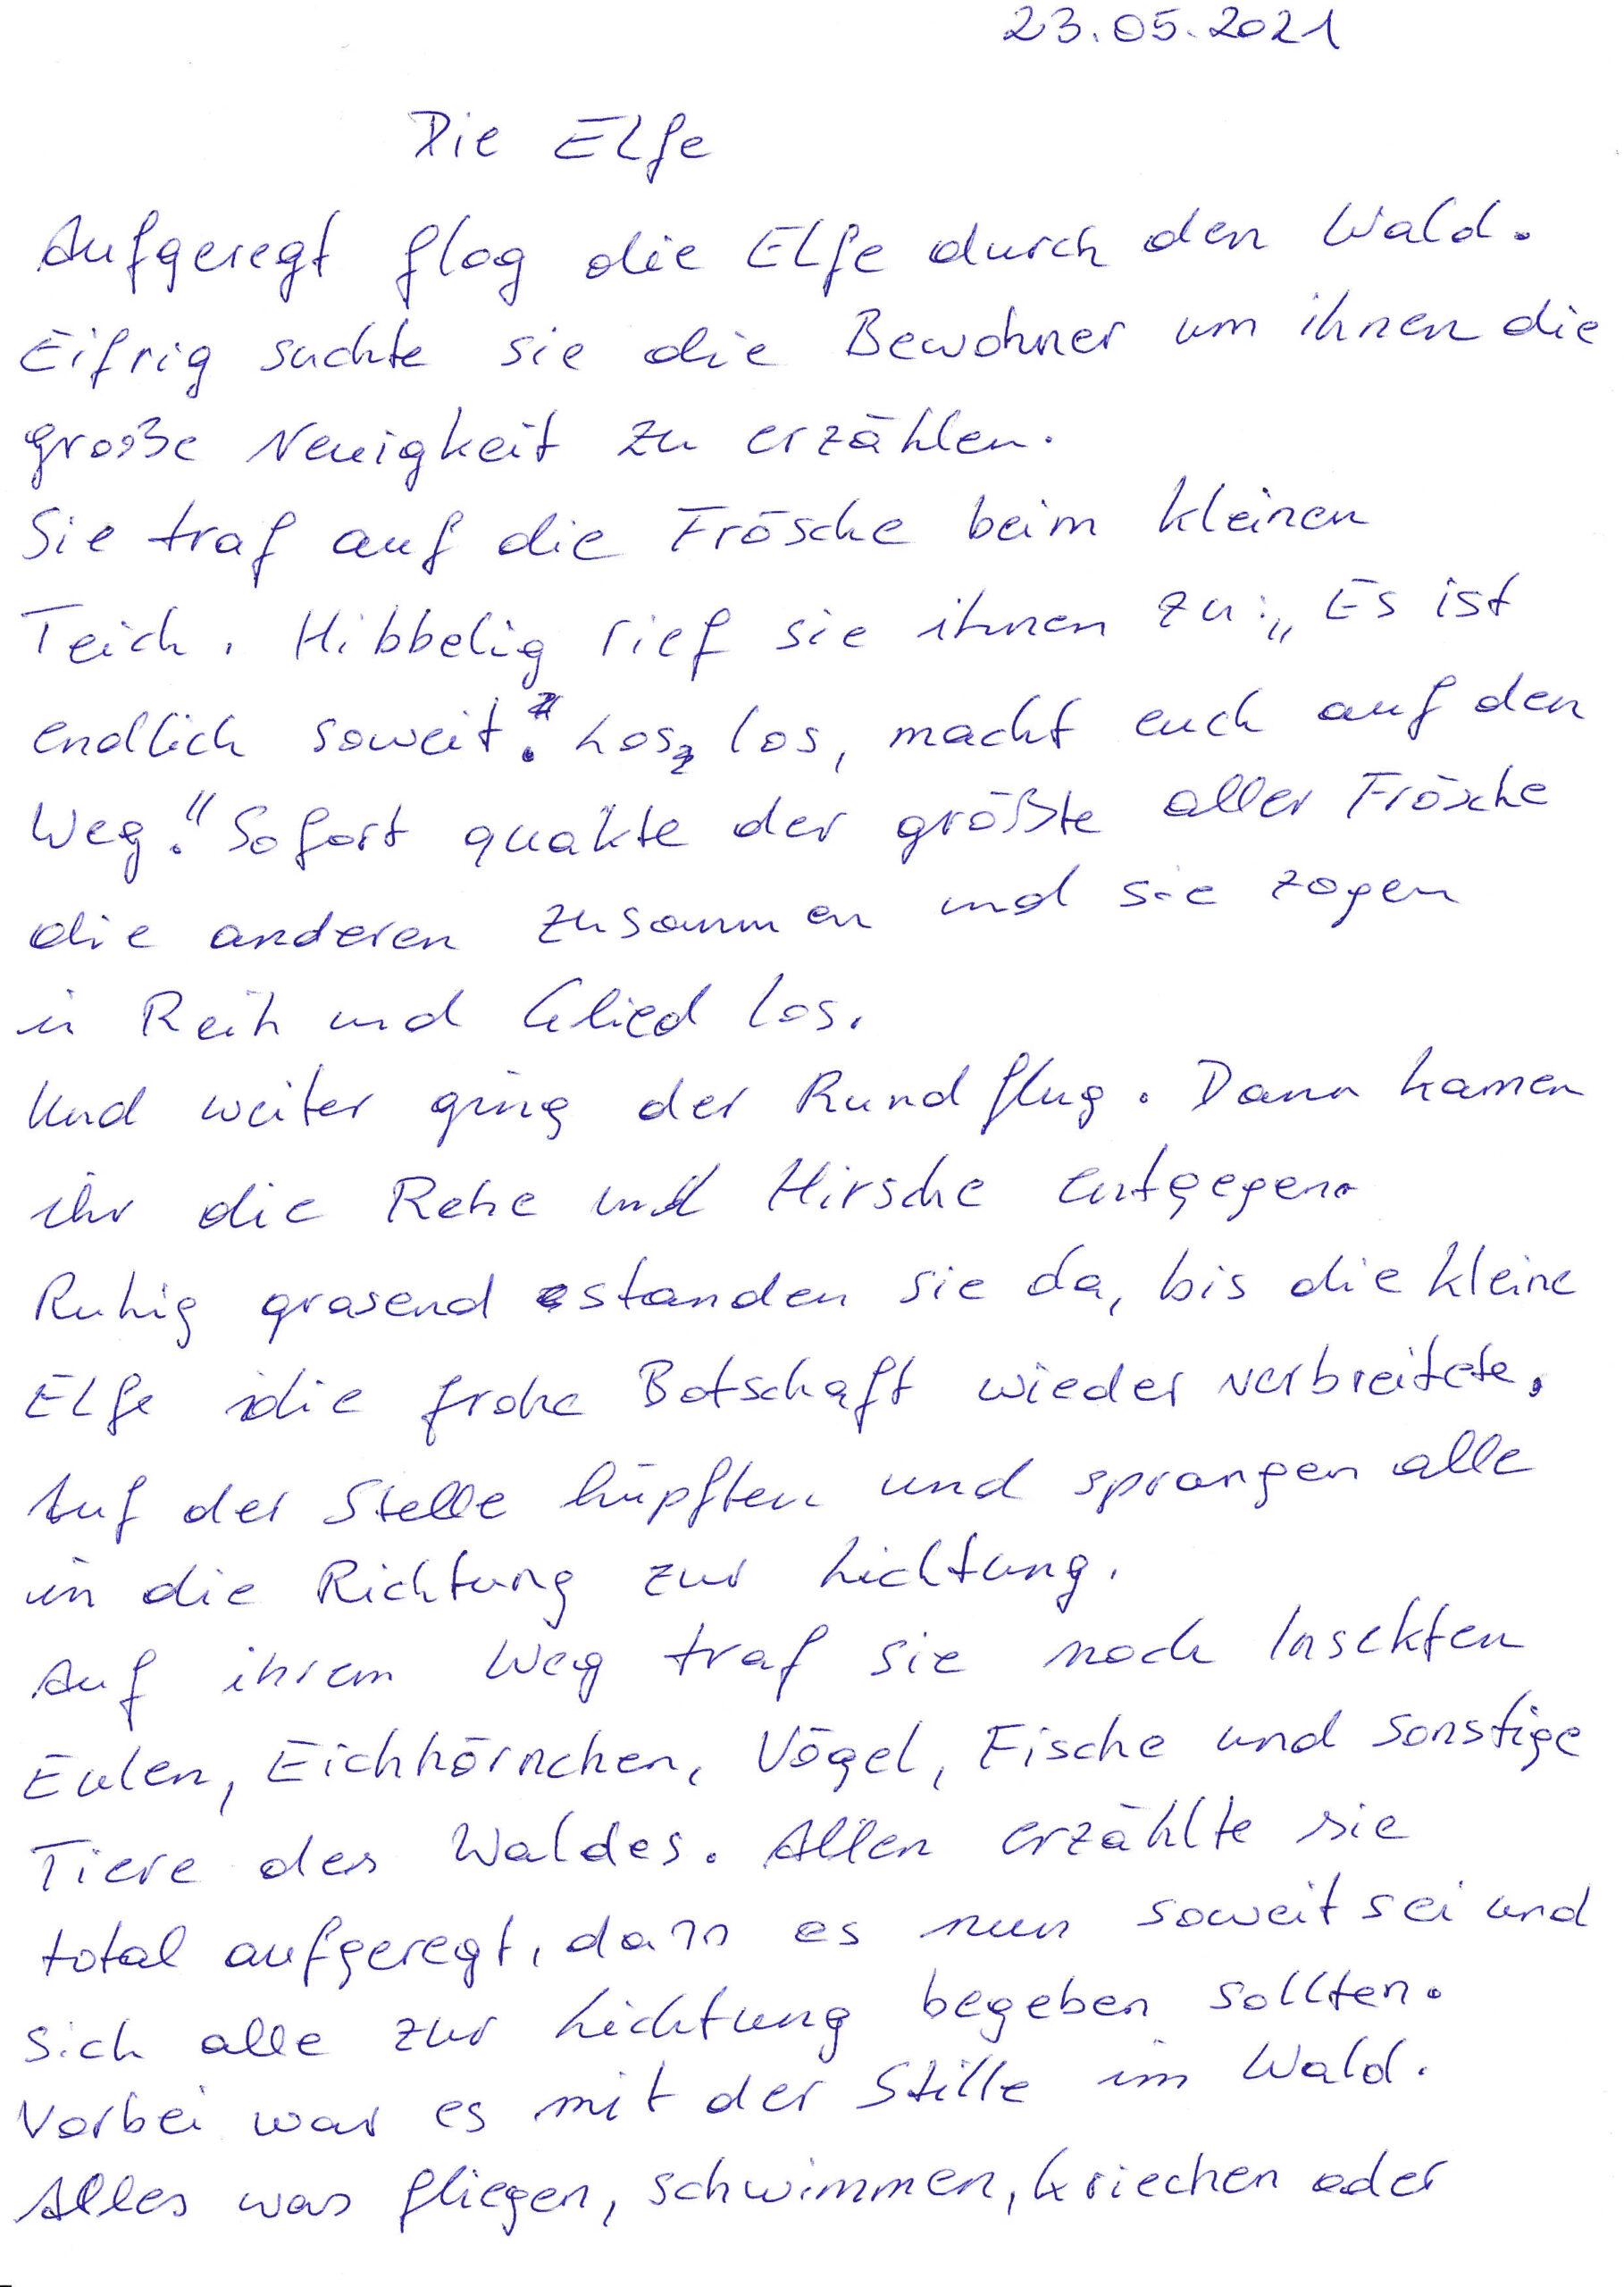 23.05.2021
Die Elfe
Aufgeregt flog die Elfe durch den Wald.
Eifrig suchte sie die Bewohner um ihnen die
große Neuigkeit zu erzählen.
Sie traf auf die Frösche beim kleinen
Teich. Hibbelig rief sie ihnen zu: „Es ist
endlich soweit. Los, los, macht euch auf den
Weg." Sofort quakte der größte aller Frösche
die anderen zusammen und sie zogen
in Reih und Glied los.
Und weiter ging der Rundflug. Dann kamen
ihr die Rehe und Hirsche entgegen.
Ruhig grasend standen sie da, bis die kleine
Elfe die frohe Botschaft wieder verbreitete.
Auf der Stelle hüpften und sprangen alle
in die Richtung zur Lichtung.
Auf ihrem Weg traf sie noch Insekten
Eulen, Eichhörnchen, Vögel, Fische und sonstige
Tiere des Waldes. Allen erzählte sie
total aufgeregt, dass es nun soweit sei und
sich alle zur Lichtung begeben sollten.
Vorbei war es mit der Stille im Wald.
Alles was fliegen, schwimmen, kriechen oder